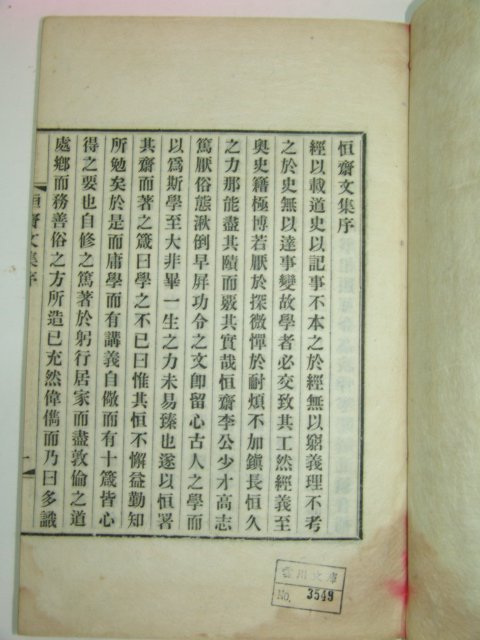 恒齋文集序
經以載道史以記事不本之於經無以窮義理不考
之於史無以達事變故學者必交致其工然經義至
奧史籍極博若厭於探微憚於耐煩不加鎭長恒久
之力那能盡其賾而覈其實哉恒齋李公少才高志
篤厭俗態湫倒早屏功令之文卽留心古人之學而
以爲斯學至大非畢一生之力未易臻也遂以恒署
其齋而著之箴曰學之不已曰惟其恒不懈益勤知
所勉矣於是而庸學而有講義自儆而有十箴皆心
得之要也自修之篤著於躬行居家而盡敦倫之道
處鄉而務善俗之方所造已充然偉儁而乃曰多識
恒齋文集序
一
雲川文庫
No. 3549